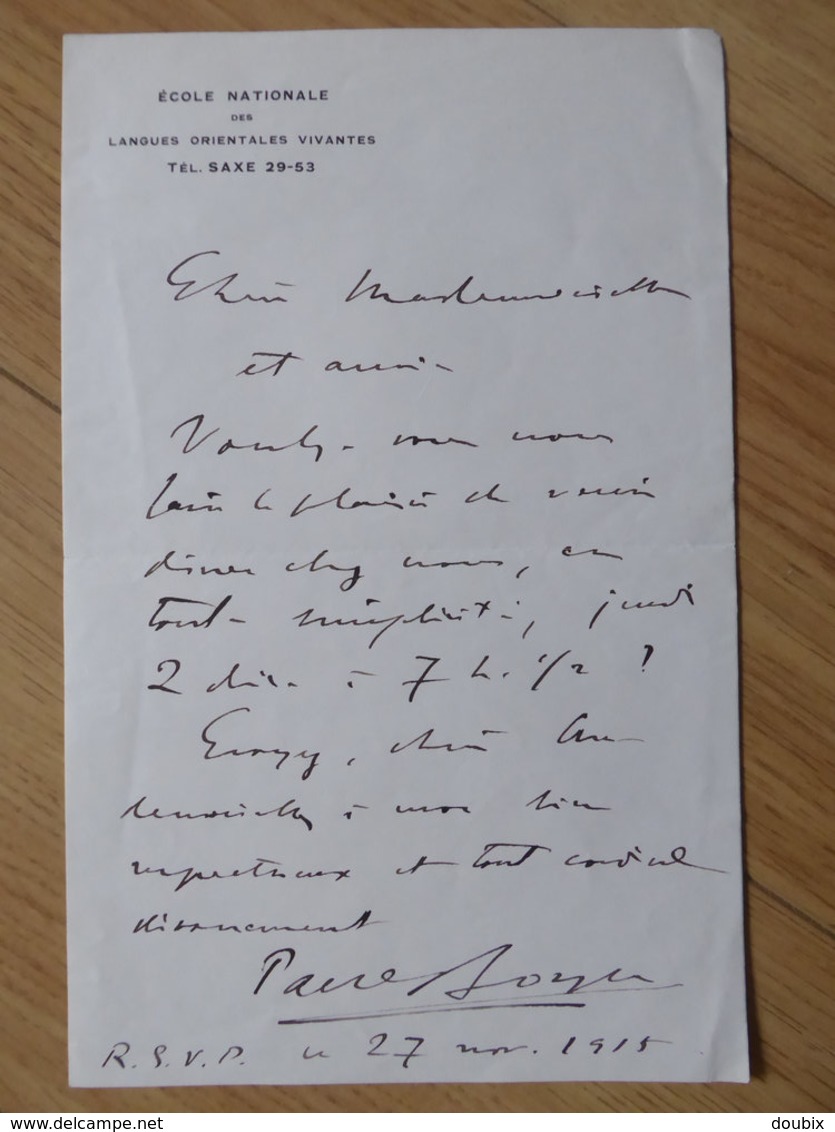 ÉCOLE NATIONALE
DES
LANGUES ORIENTALES VIVANTES
TÉL. SAXE 29-53
Chère Mademoiselle
et amie
Voulez-vous nous
faire le plaisir de venir
dîner chez nous, en
toute simplicité, jeudi
2 déc. à 7 h. 1/2 ?
Croyez, chère
à mon bien
respectueux et tout cordial
dévouement
Paul Boyer
R.S.V.P. ce 27 nov. 1915
delcampe.net
doubix